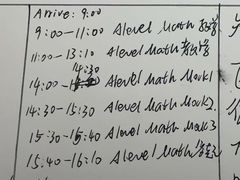 Arrive: 9:00
9:00-11:00 Alevel Math
11:00-13:10 Alevel Math
14:30
14:00- Alevel Math Mock1
14:30-15:30 Alevel Math Mock2.
15:30-15:40 Alevel Math Mock3
15:40-16:10 Alevel Math